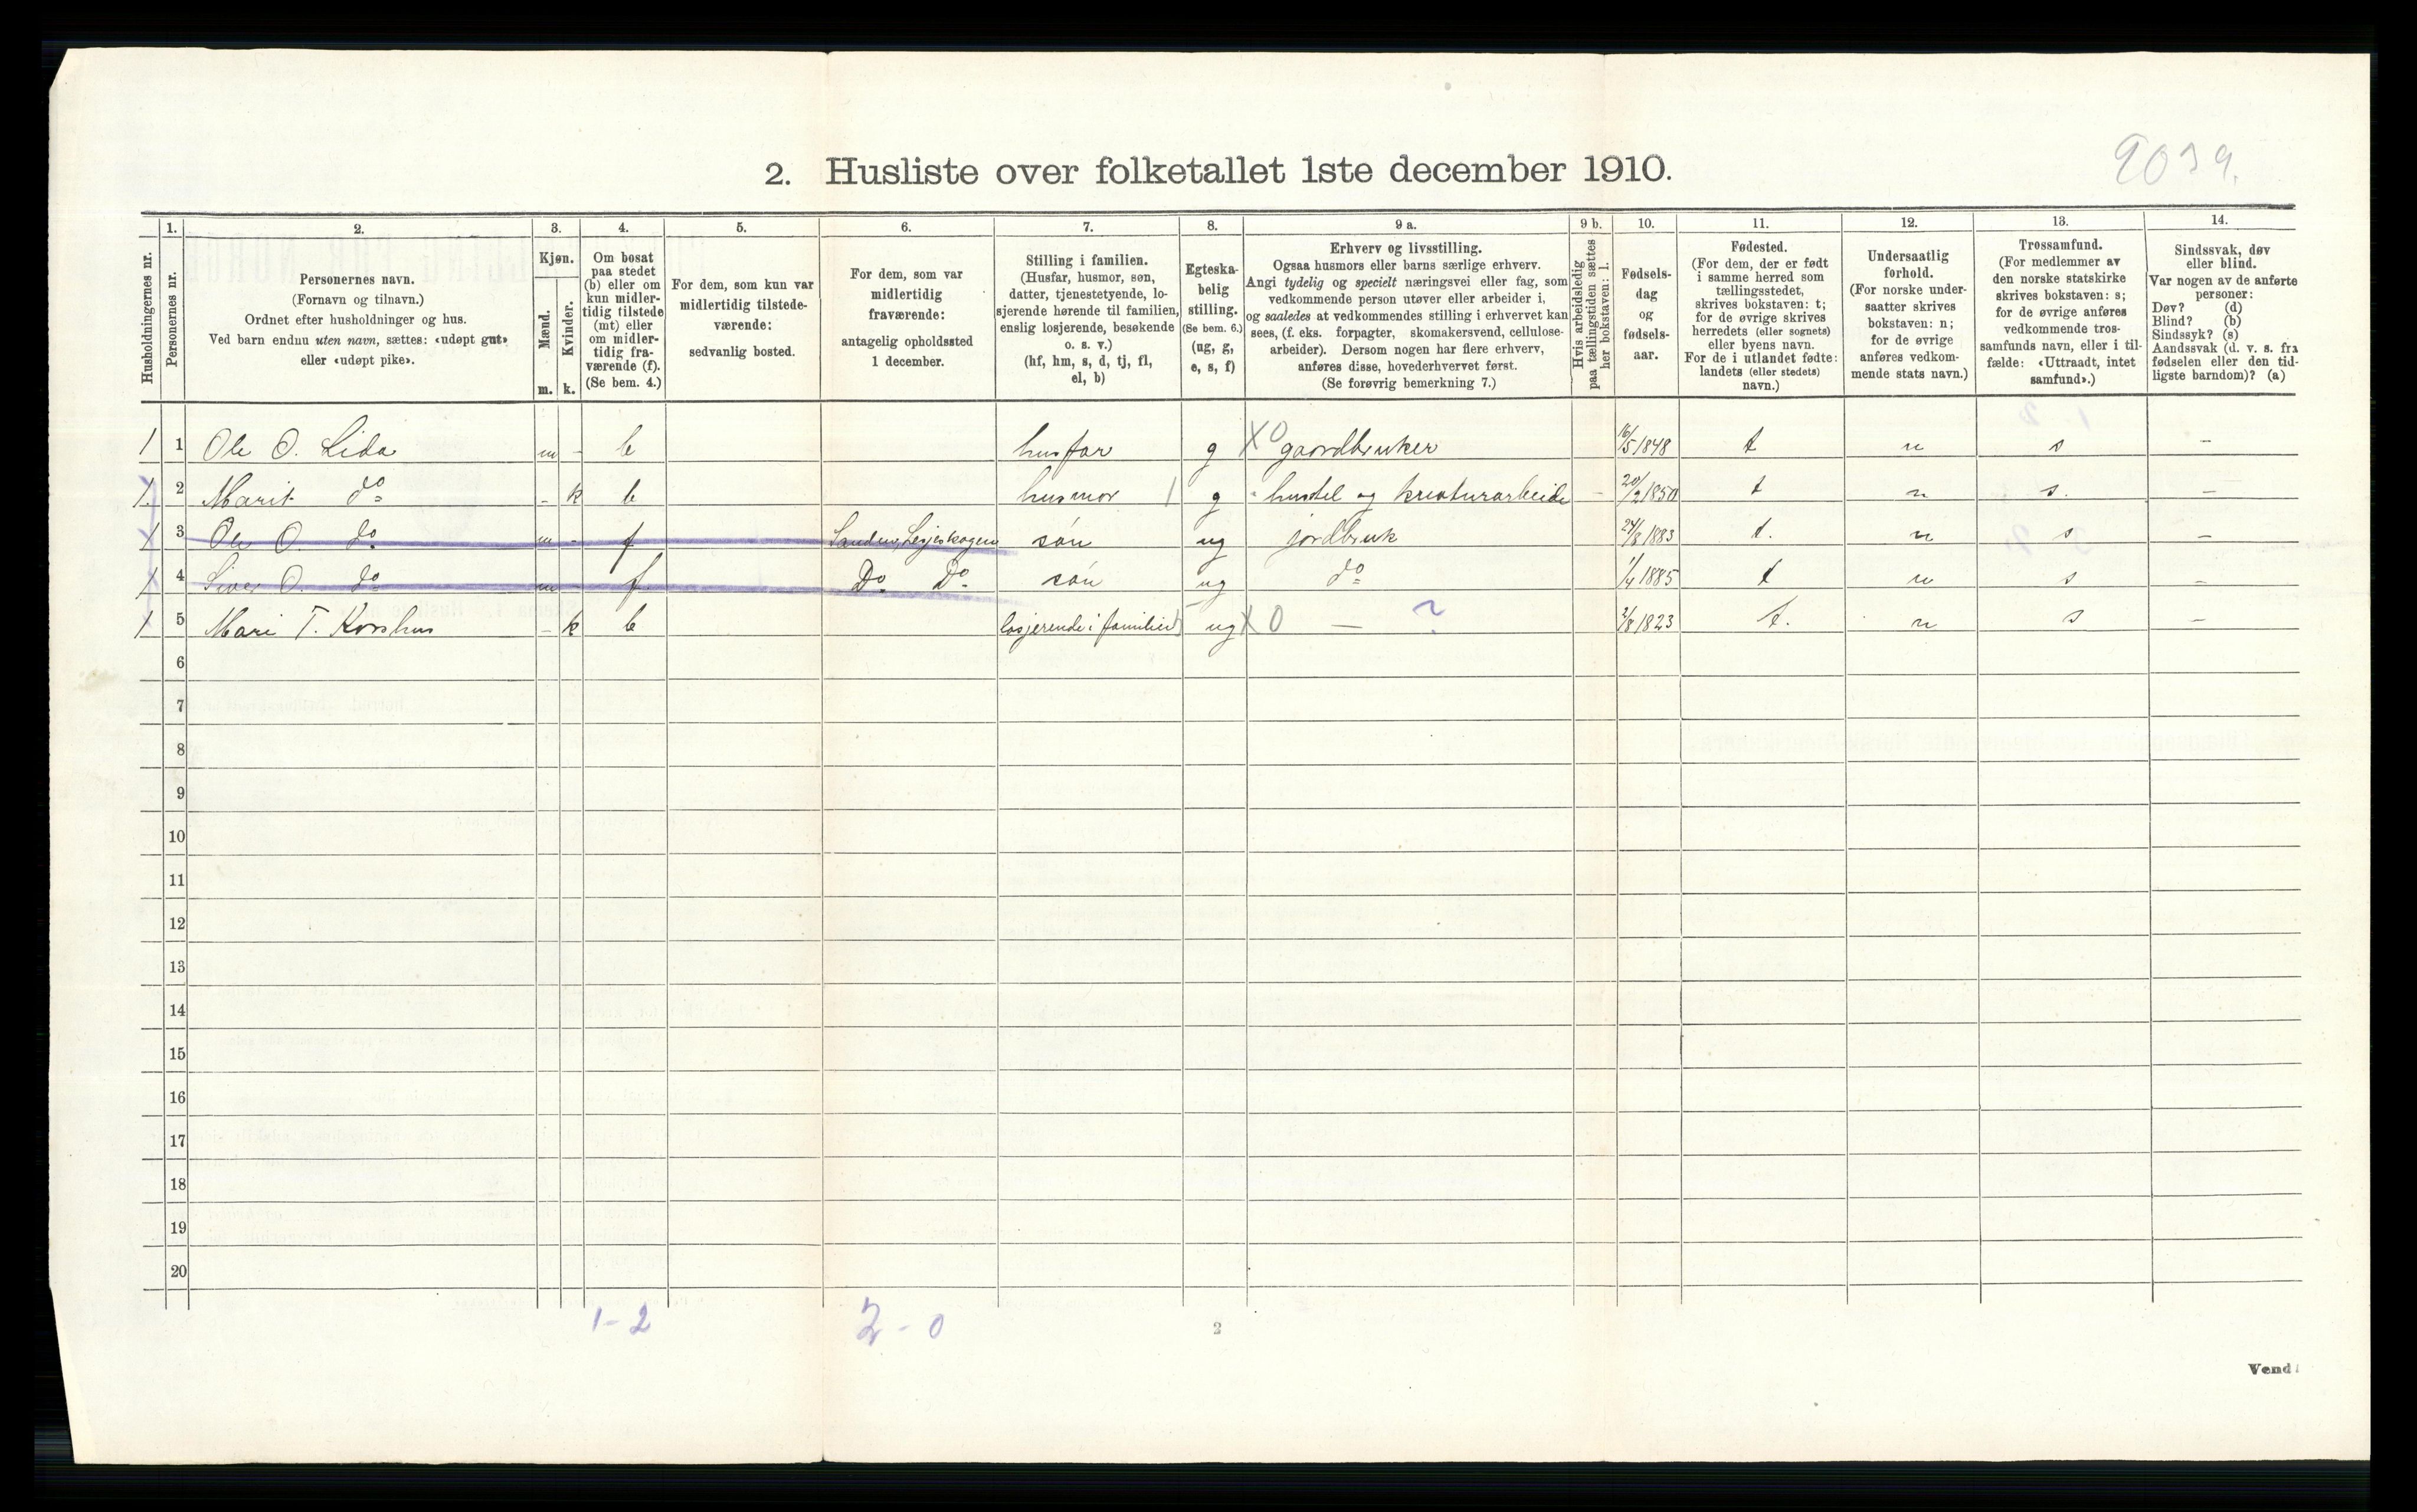 9039.
2. Husliste over folketallet 1ste december 1910.
Husholdningernes nr.
1.
Personernes nr.
2.
Personernes navn.
(Fornavn og tilnavn.)
Ordnet efter husholdninger og hus.
Ved barn endnu uten navn, sættes: «udøpt gut»
eller «udøpt pike».
3.
Kjøn.
Mænd.
m.
Kvinder.
k.
4.
Om bosat
paa stedet
(b) eller om
kun midler-
tidig tilstede
(mt) eller
om midler-
tidig fra-
værende (f).
(Se bem. 4.)
5.
For dem, som kun var
midlertidig tilstede-
værende:
sedvanlig bosted.
6.
For dem, som var
midlertidig
fraværende:
antagelig opholdssted
1 december.
7.
Stilling i familien.
(Husfar, husmor, søn,
datter, tjenestetyende, lo-
sjerende hørende til familien,
enslig losjerende, besøkende
o. s. v.)
(hf, hm, s, d, tj, fl,
el, b)
8.
Egteska-
belig
stilling.
(Se bem. 6.)
(ug, g,
e, s, f)
9 a.
Erhverv og livsstilling.
Ogsaa husmors eller barns særlige erhverv.
Angi tydelig og specielt næringsvei eller fag, som
vedkommende person utøver eller arbeider i,
og saaledes at vedkommendes stilling i erhvervet kan
sees, (f. eks. forpagter, skomakersvend, cellulose-
arbeider). Dersom nogen har flere erhverv,
anføres disse, hovederhvervet først.
(Se forøvrig bemerkning 7.)
9 b.
Hvis arbeidsledig
paa tællingstiden sættes
her bokstaven: l.
10.
Fødsels-
dag
og
fødsels-
aar.
11.
Fødested.
(For dem, der er født
i samme herred som
tællingsstedet,
skrives bokstaven: t;
for de øvrige skrives
herredets (eller sognets)
eller byens navn.
For de i utlandet fødte:
landets (eller stedets)
navn.)
12.
Undersaatlig
forhold.
(For norske under-
saatter skrives
bokstaven: n;
for de øvrige
anføres vedkom-
mende stats navn.)
13.
Trossamfund.
(For medlemmer av
den norske statskirke
skrives bokstaven: s;
for de øvrige anføres
vedkommende tros-
samfunds navn, eller i til-
fælde: «Uttraadt, intet
samfund».)
14.
Sindssvak, døv
eller blind.
Var nogen av de anførte
personer:
Døv? (d)
Blind? (b)
Sindssyk? (s)
Aandssvak (d. v. s. fra
fødselen eller den tid-
ligste barndom)? (a)
1 1 Ole O. Lida m - b husfar g X0 gaardbruker 16/5 1848 t n s -
1. 2 Marit do - k b husmor 1 g husstel og kreaturarbeide - 20/2 1850 t n s. -
1 3 Ole O. do m - f Sandnes, Lesjeskogen søn ug jordbruk 24/8 1883 t. n s -
1 4 Siver O. do m - f Do Do søn ug do 1/4 1885 t n s -
1 5 Mari T. Korshus - k b losjerende i familien ug X0 - ? 2/8 1823 t. n s -
6
7
8
9
10
11
12
13
14
15
16
17
18
19
20
1-2 2-0
2
Vend!